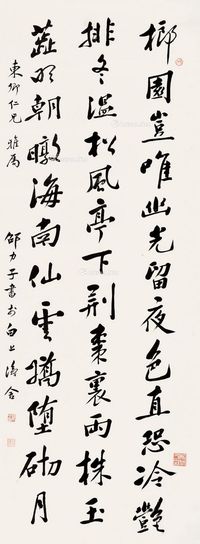 榔園豈唯幽光留夜色直恐冷豔
排冬溫松風亭下荊棘裏兩株玉
蕋明朝暾海南仙雲嬌墮砌月
東卿仁兄 雅屬
邵力子書於